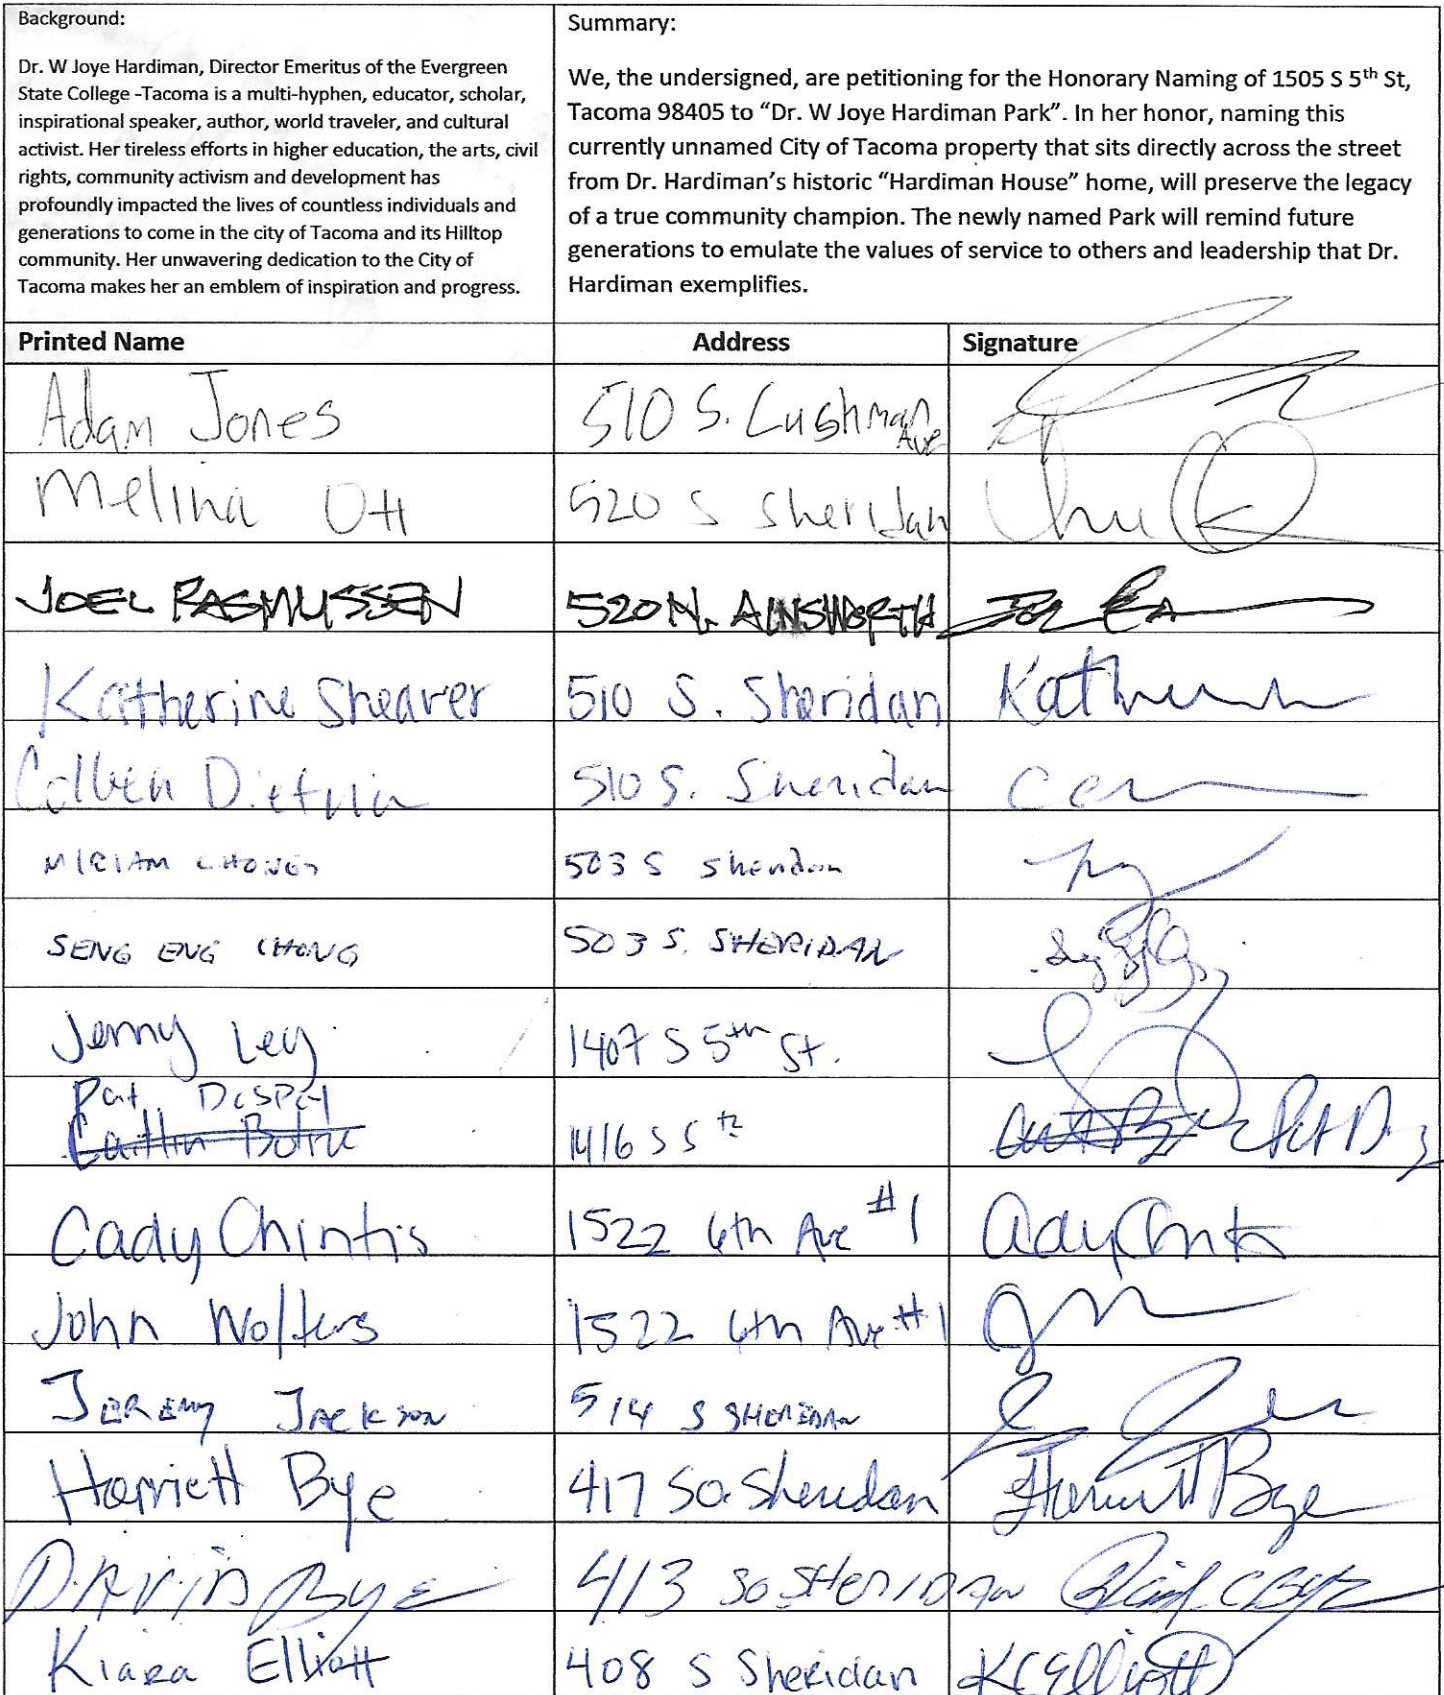 Background:
Dr. W Joye Hardiman, Director Emeritus of the Evergreen
State College -Tacoma is a multi-hyphen, educator, scholar,
inspirational speaker, author, world traveler, and cultural
activist. Her tireless efforts in higher education, the arts, civil
rights, community activism and development has
profoundly impacted the lives of countless individuals and
generations to come in the city of Tacoma and its Hilltop
community. Her unwavering dedication to the City of
Tacoma makes her an emblem of inspiration and progress.
Summary:
We, the undersigned, are petitioning for the Honorary Naming of 1505 S 5th St,
Tacoma 98405 to “Dr. W Joye Hardiman Park”. In her honor, naming this
currently unnamed City of Tacoma property that sits directly across the street
from Dr. Hardiman’s historic “Hardiman House” home, will preserve the legacy
of a true community champion. The newly named Park will remind future
generations to emulate the values of service to others and leadership that Dr.
Hardiman exemplifies.
Printed Name Address Signature
Adam Jones 510 S. Cushman Ave
Melina Ott 520 S Sheridan
JOEL RASMUSSEN 520 N. AINSWORTH
Katherine Shearer 510 S. Sheridan
510 S. Sheridan
MIRIAM CHONG 503 S Sheridan
SENG ENG CHONG 503 S. SHERIDAN
Jenny Ley 1407 S 5th St.
Pat
Caitlin 1416 S 5th
Cady Chintis 1522 6th Ave #1
John Wolters 1522 6th Ave #1
JEREMY JACKSON 514 S SHERIDAN
Harriett Bye 417 So. Sheridan Harriett Bye
DAVID BYE 413 SO SHERIDAN David C Bye
Kiara Elliott 408 S Sheridan KCElliott